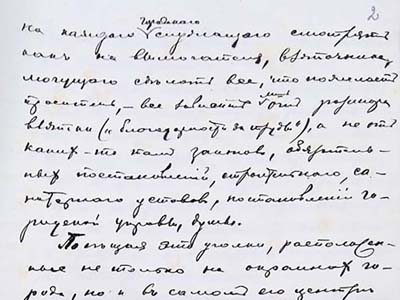 2
городского
на каждаго служащаго смотрятъ
какъ на вымогателя, взяточника,
могущаго сделать все, что пожелаетъ
проситель, – все зависитъ отъ размера
взятки („благодарность за труды“), а не отъ
какихъ-то тамъ законовъ, обязатель-
ныхъ постановленій, строительнаго, са-
нитарнаго уставовъ, постановленій го-
родской управы, думы.
Посещая эти уголки, расположен-
ные не только на окраинахъ го-
рода, но и въ самомъ его центре